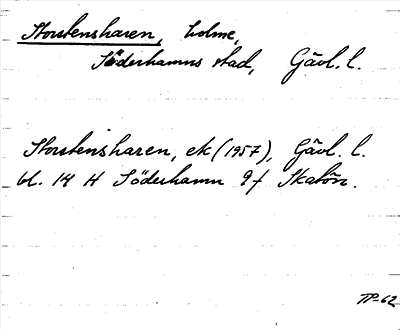 Storstensharen, holme,
Söderhamns stad, Gävl. l.
Storstensharen, ek (1957), Gävl. l.
bl. 14 H Söderhamn 9f Skatön.
TP-62